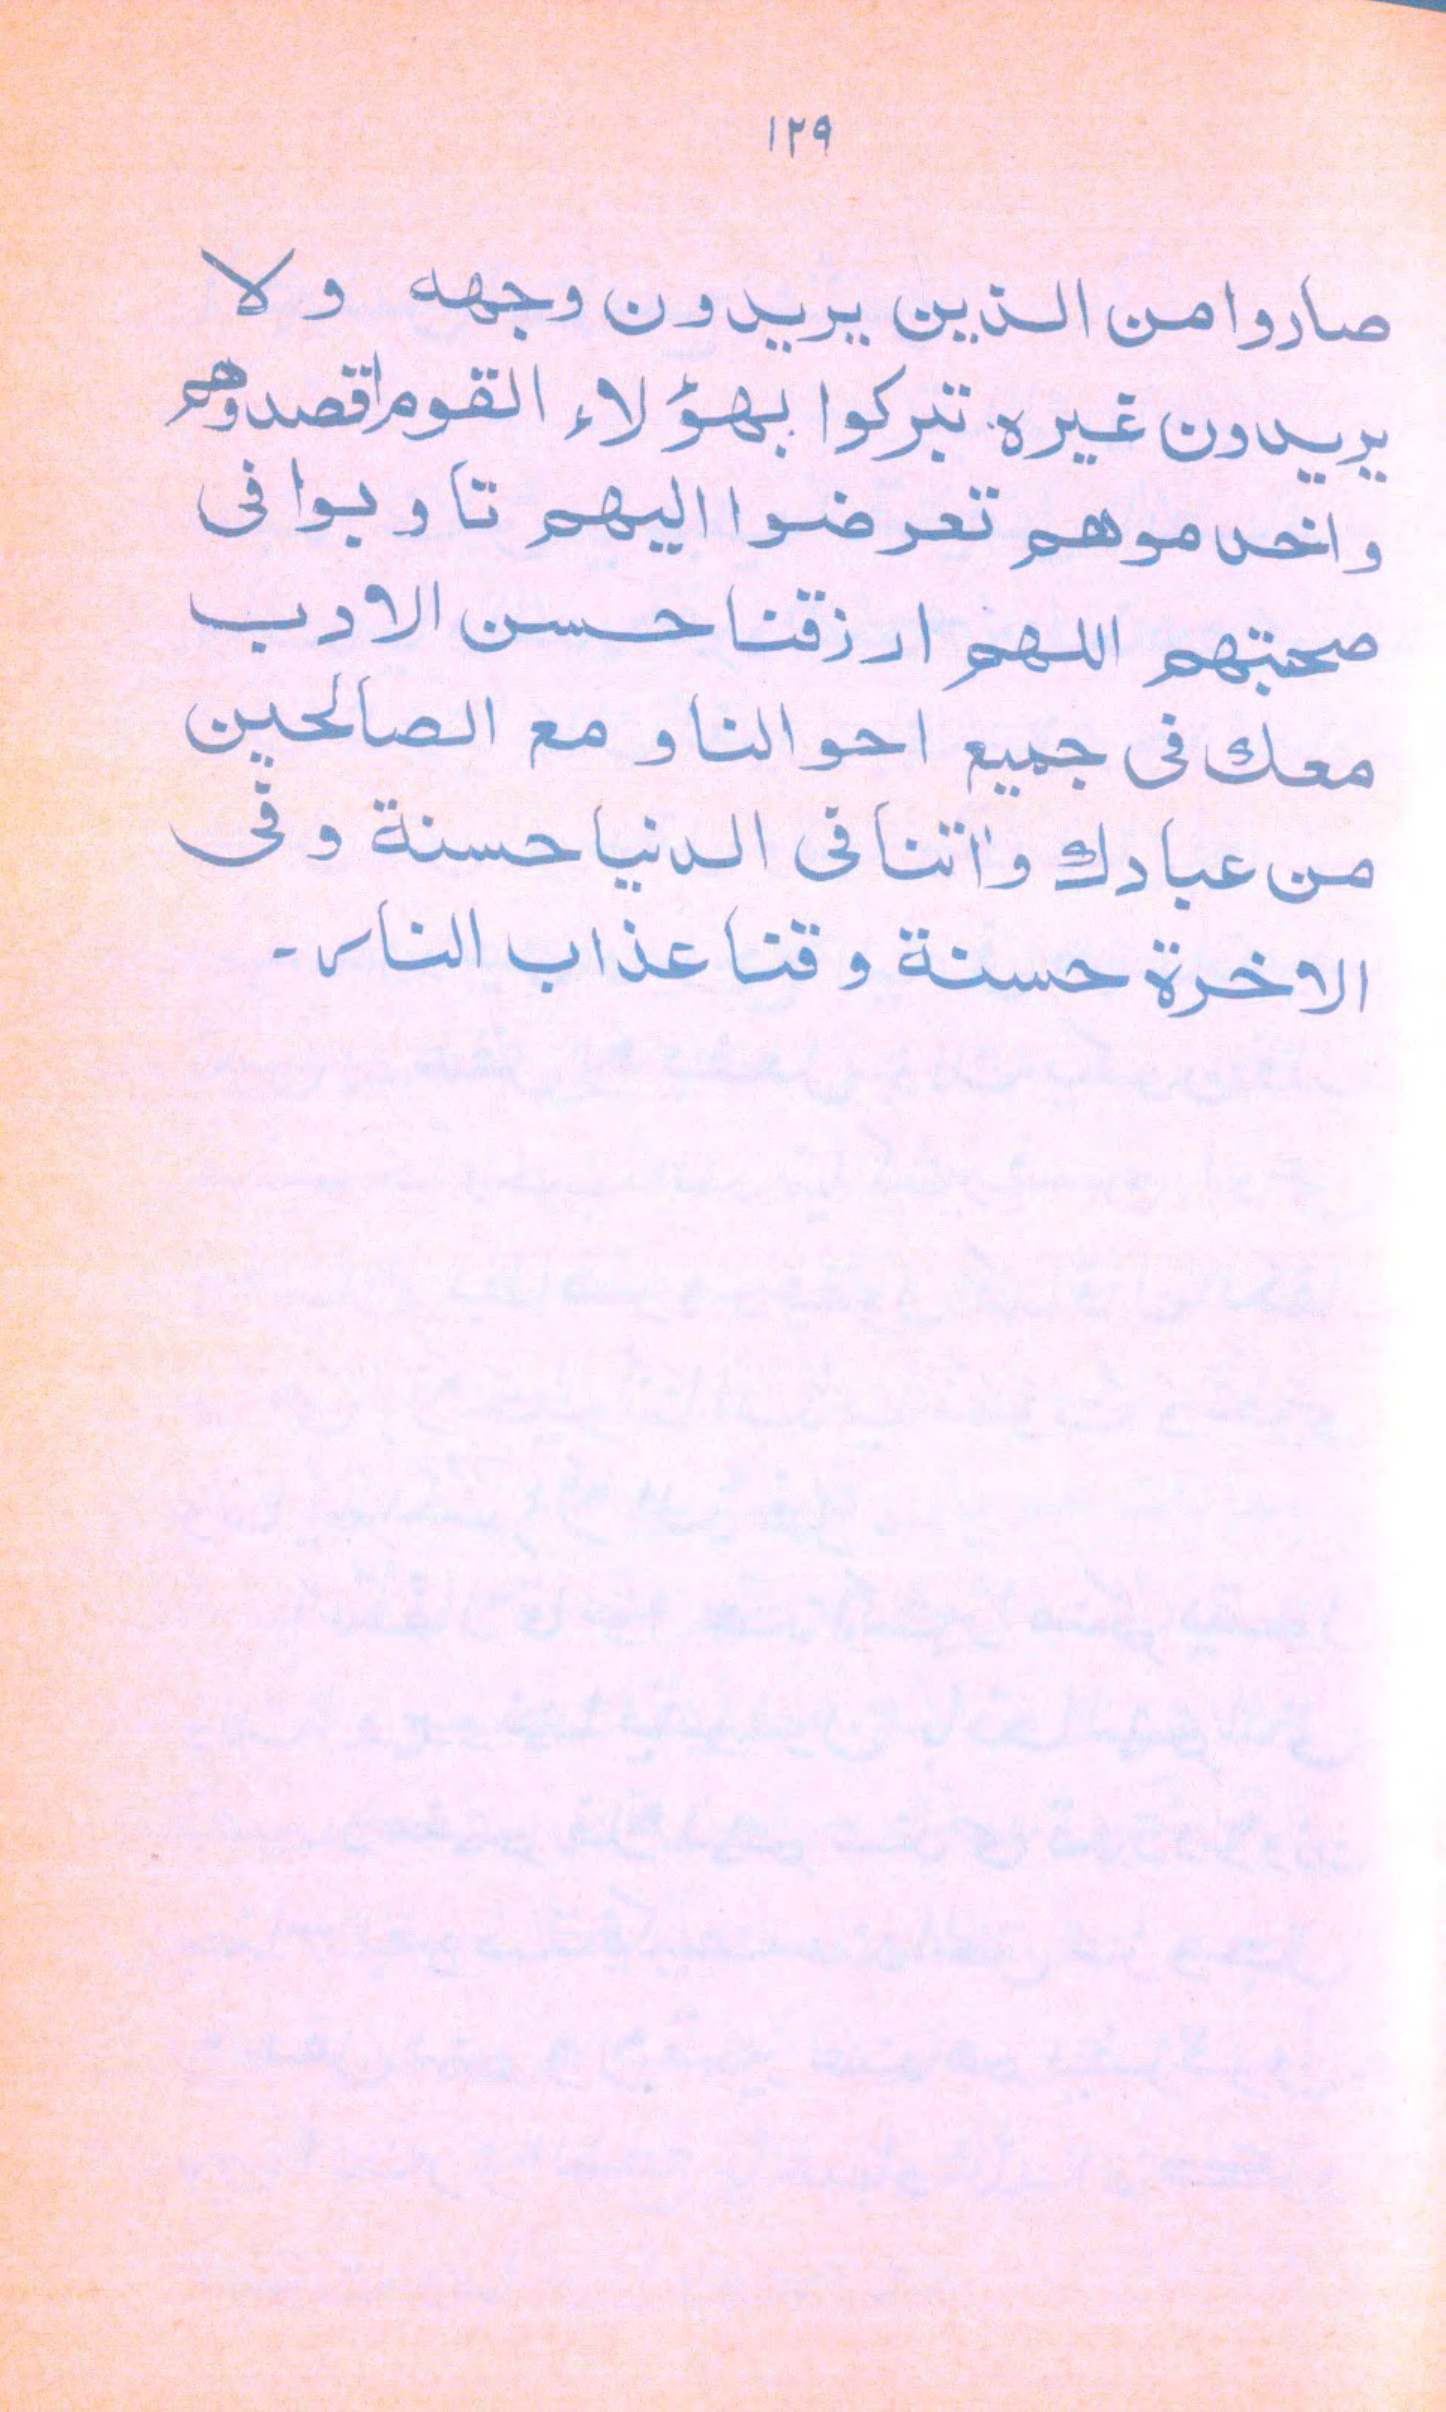 ١٢٩
صاروا من الذين يريدون وجهه ولا
يريدون غيره تبركوا بهؤلاء القوم اقصدوهم
واخدموهم تعرضوا اليهم تادبوا فى
صحبتهم اللهم ارزقنا حسن الادب
معك فى جميع احوالنا و مع الصالحين
من عبادك واٰتنا فى الدنيا حسنة و فى
الاخرة حسنة وقنا عذاب النار-